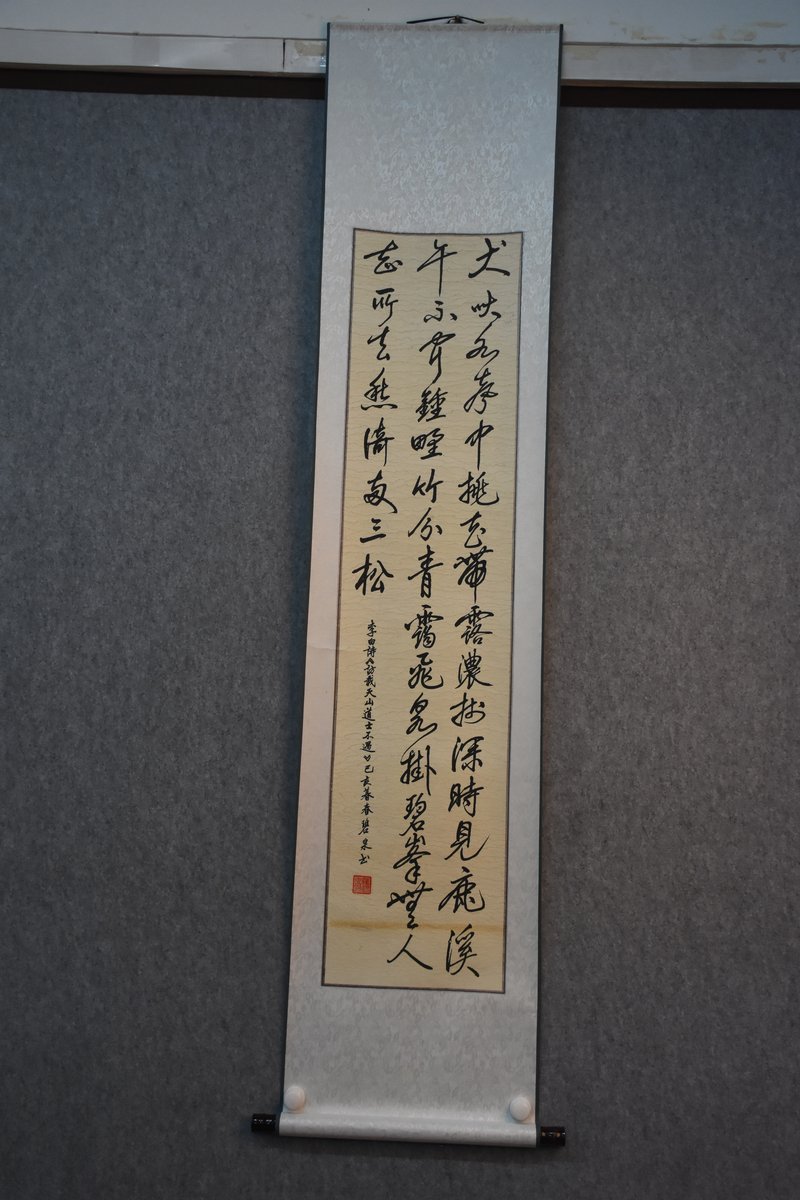 犬吠水聲中桃花帶露濃樹深時見鹿溪
午不聞鐘野竹分青靄飛泉掛碧峯無人
知所去愁倚兩三松
李白詩《訪戴天山道士不遇》己亥暮春碧泉书